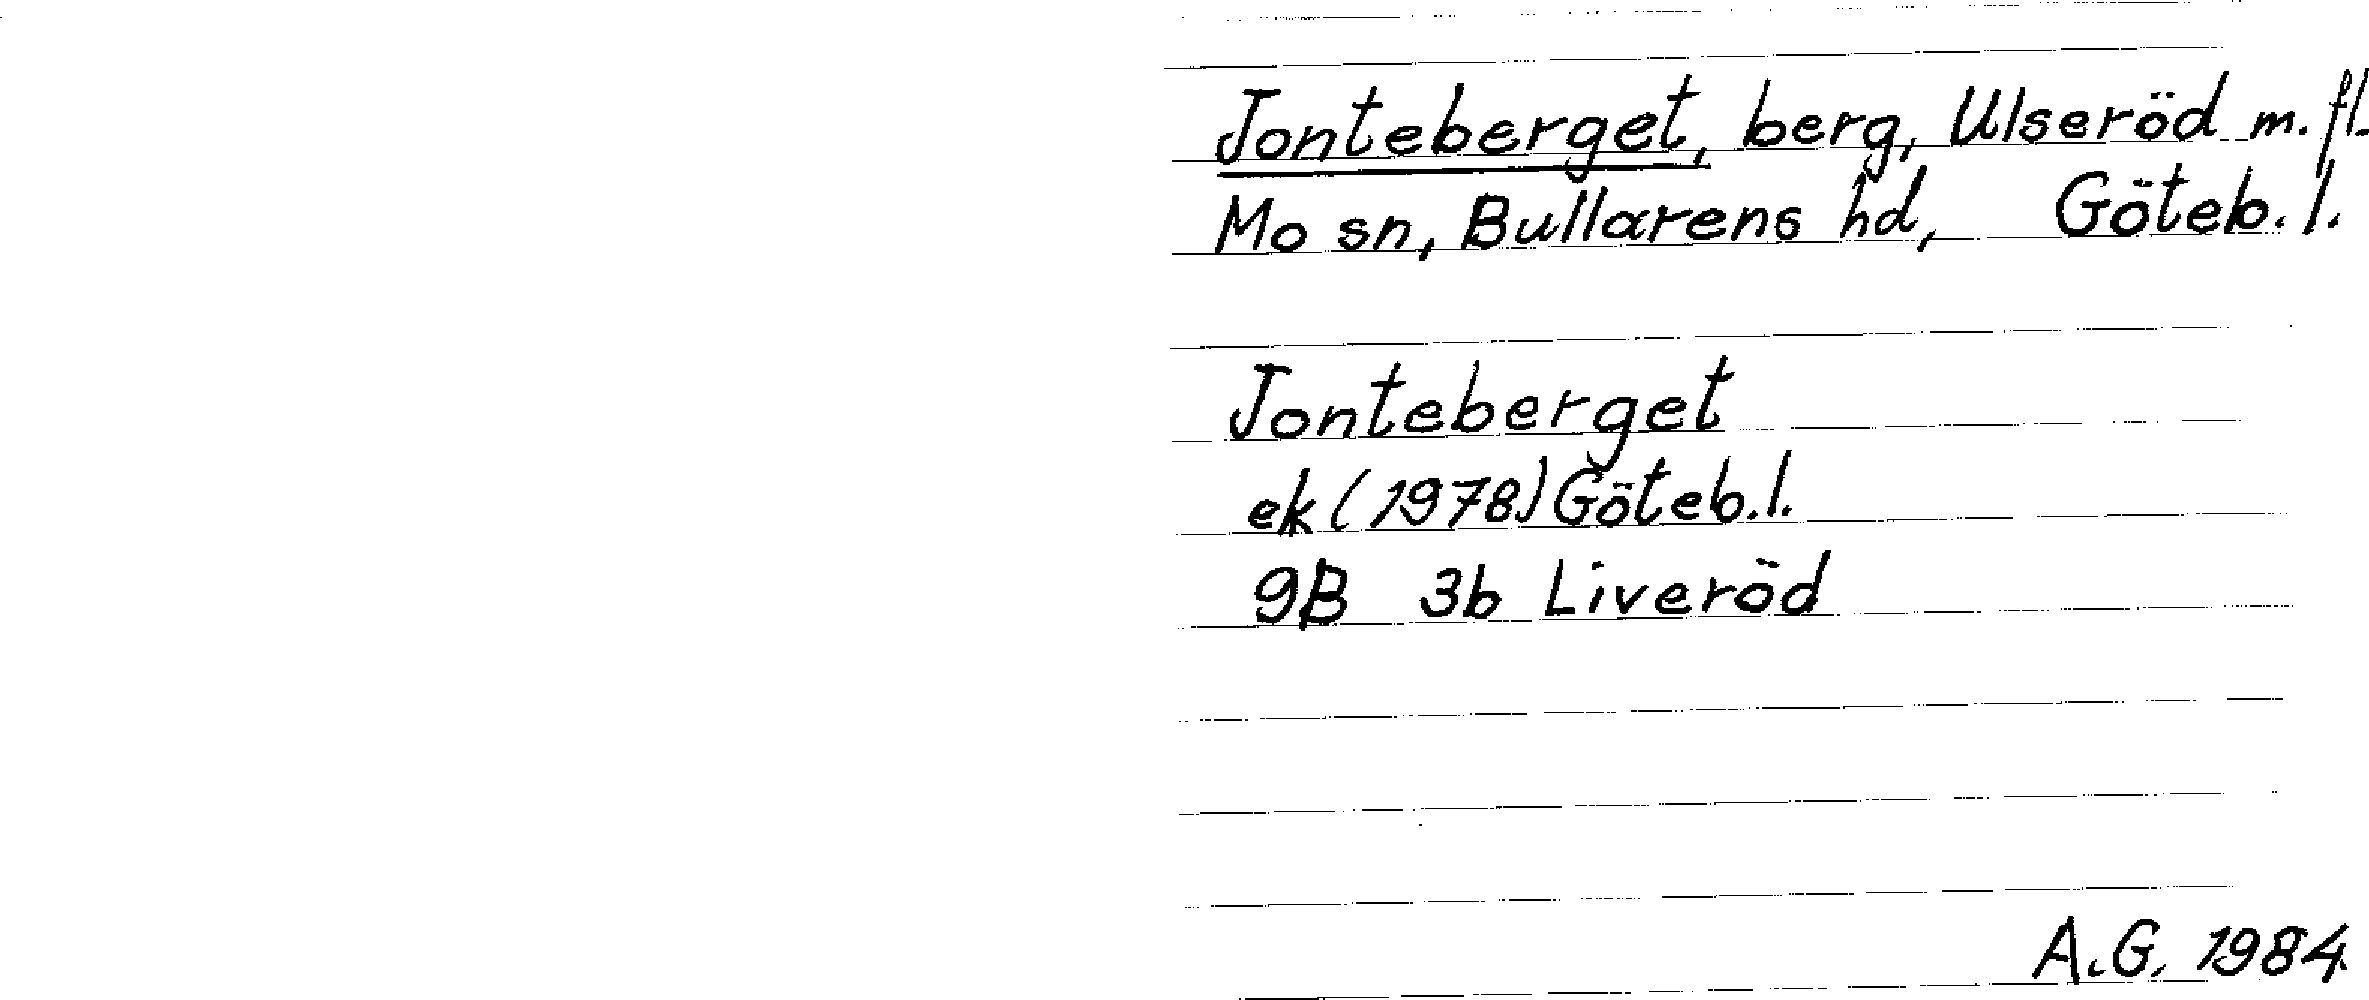 Jonteberget, berg, Ulseröd m.fl.
Mo sn, Bullarens hd, Göteb. l.
Jonteberget
ek (1978) Göteb. l.
9B 3b Liveröd
A.G. 1984